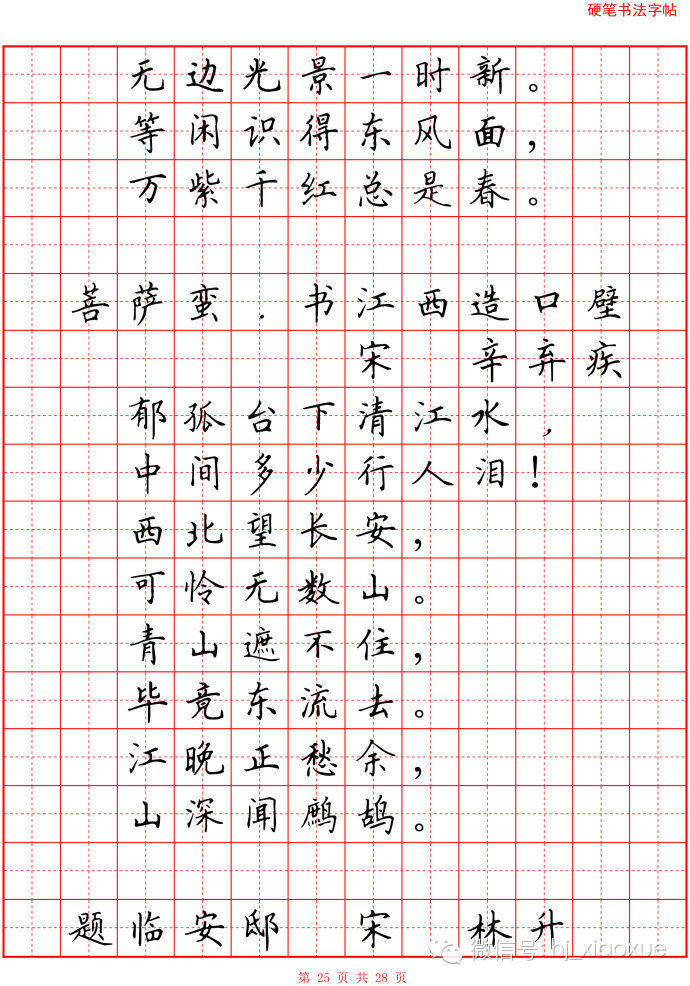 硬笔书法字帖
无边光景一时新。
等闲识得东风面，
万紫千红总是春。
菩萨蛮．书江西造口壁
宋 辛弃疾
郁孤台下清江水，
中间多少行人泪！
西北望长安，
可怜无数山。
青山遮不住，
毕竟东流去。
江晚正愁余，
山深闻鹧鸪。
题临安邸 宋 林升
微信号: hj_xiaoxue
第 25 页 共 28 页